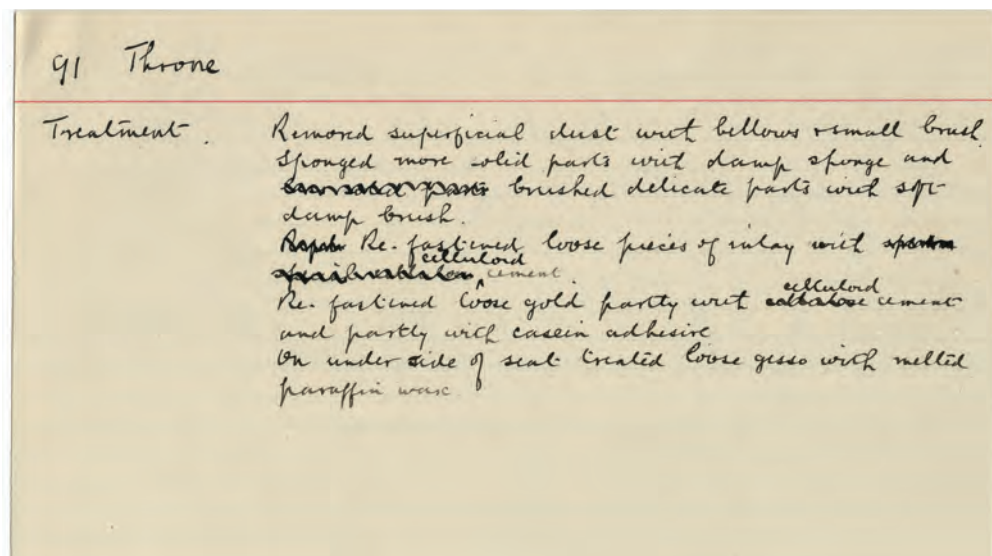 91 Throne
Treatment. Removed superficial dust with bellows & small brush.
Sponged more solid parts with damp sponge and
brushed delicate parts with soft
damp brush.
Re-fastened loose pieces of inlay with
celluloid cement.
Re-fastened loose gold partly with celluloid cement
and partly with casein adhesive
On under side of seat treated loose gesso with melted
paraffin wax